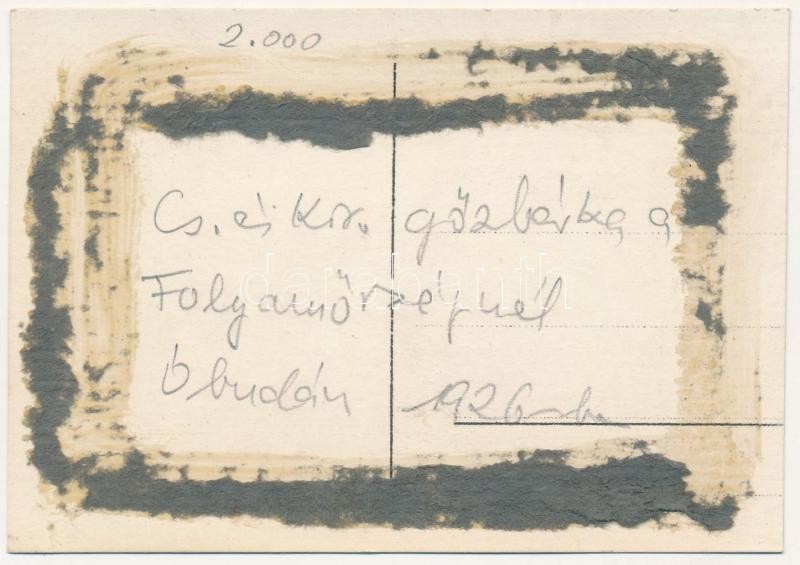 2.000
Cs. és Kir. gőzbárka a
Folyamőrségnél
Óbudán 1926-ban
darabanth